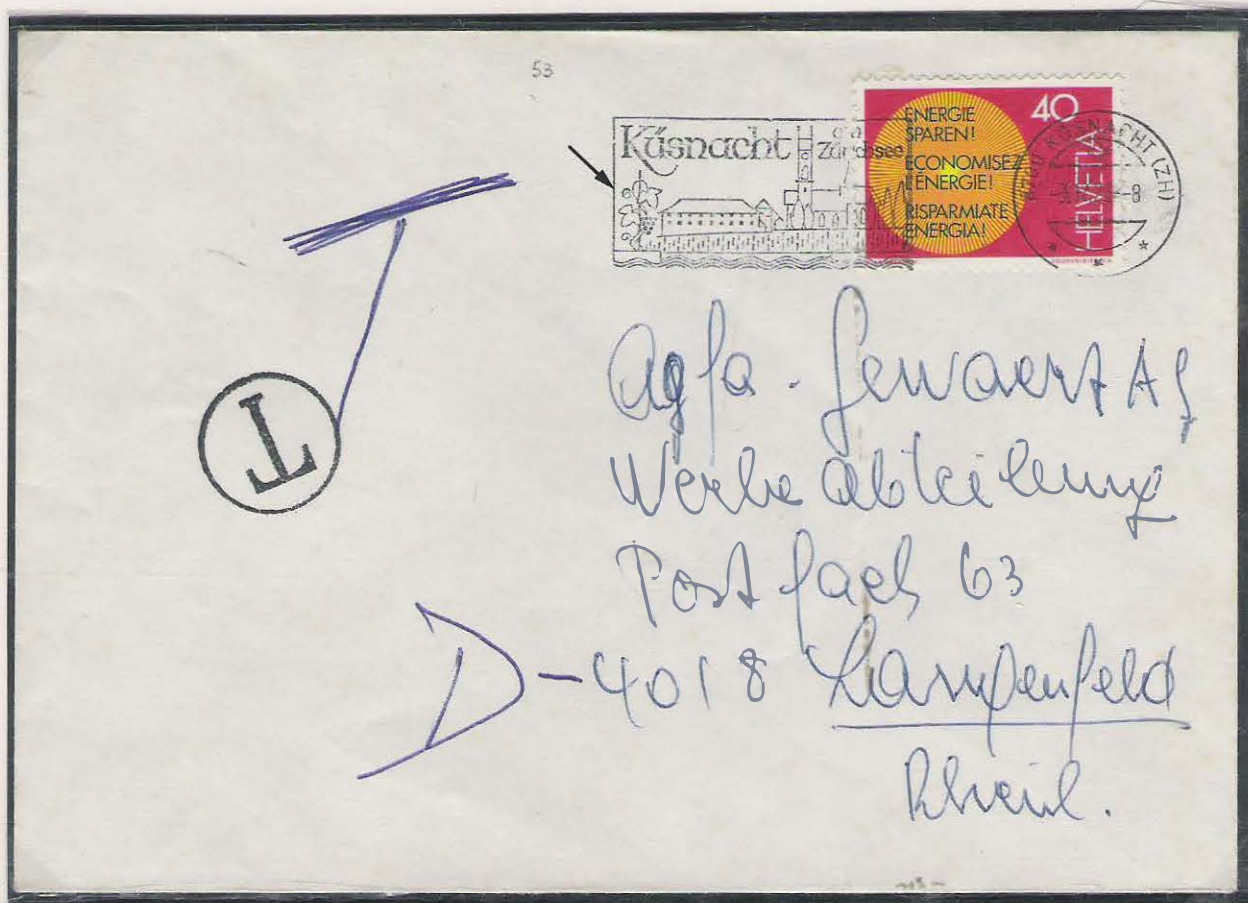 53
Küsnacht am Zürichsee
40
ENERGIE
SPAREN!
ECONOMISEZ
L'ENERGIE!
RISPARMIATE
ENERGIA!
HELVETIA
KÜSNACHT (ZH)
-8
T
T
Agfa-Gevaert AG
Werbeabteilung
Postfach 63
D-4018 Langenfeld
Rheinl.